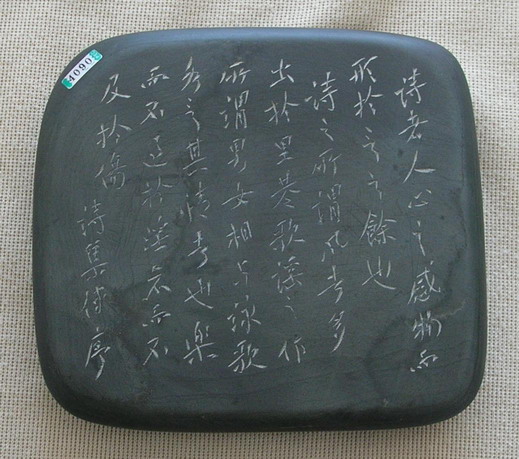 詩者人心之感物而
形扵言之餘也
詩之所謂風者多
出扵里巷歌謠之作
所謂男女相与詠歌
各言其情者也樂
而不過扵淫哀而不
及扵傷 詩集傳序
4090